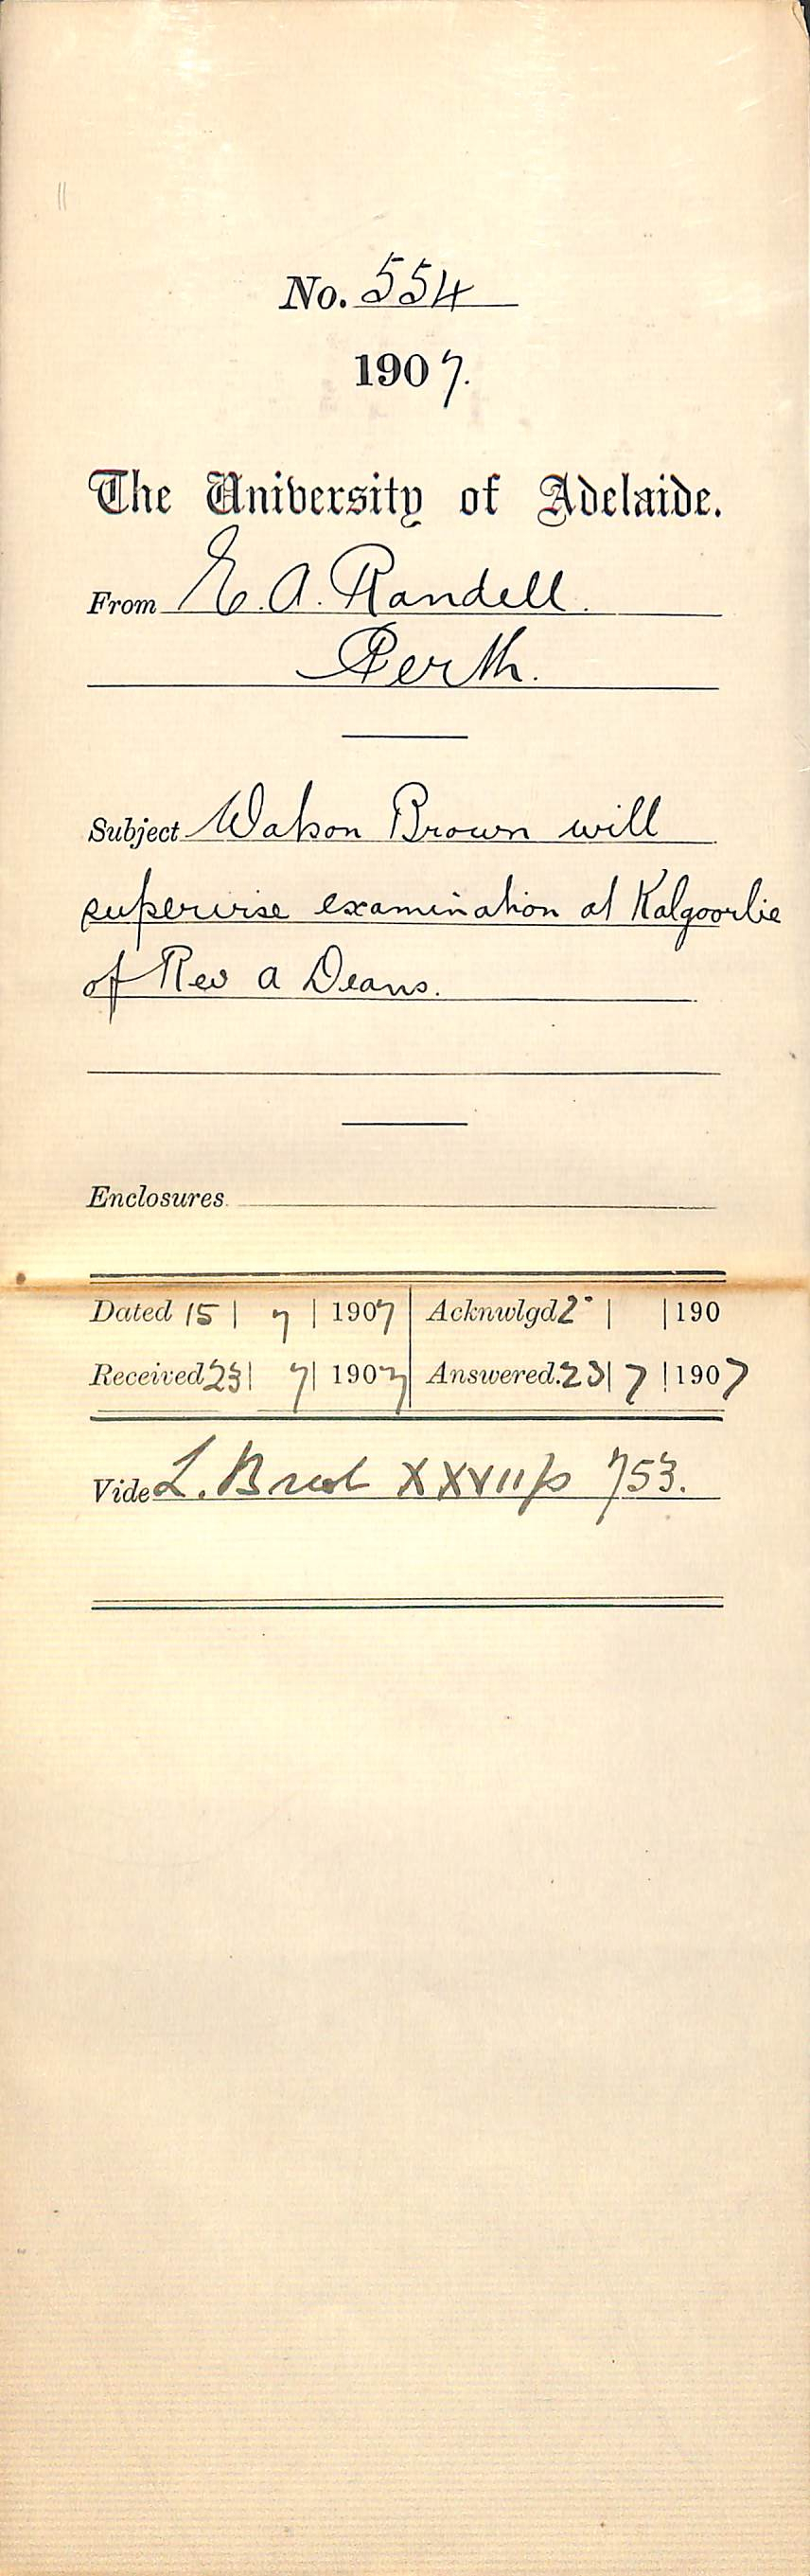 No. 554
1907.
The University of Adelaide.
From E. A. Randell.
Perth.
Subject Watson Brown will
supervise examination at Kalgoorlie
of Rev A Deans.
Enclosures
Dated 15 | 7 | 1907 Acknwlgd 2 | | 190
Received 23 | 7 | 1907 Answered. 23 | 7 | 1907
Vide L. XXVII p 753.